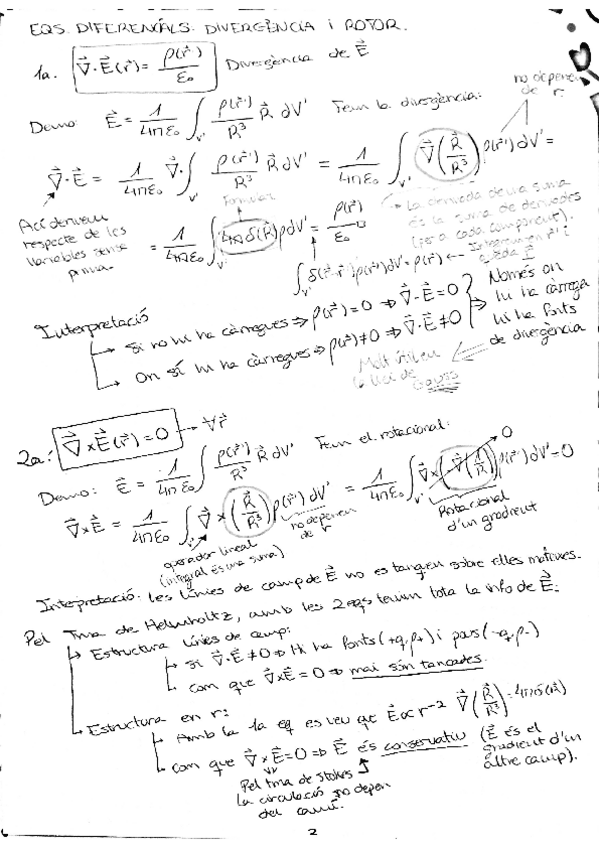 EQS. DIFERENCIALS. DIVERGÈNCIA i ROTOR.
1a. ∇·E(r) = ρ(r)/ε₀ Divergència de E
no depenen de r.
Demo: E = 1/4πε₀ ∫v' ρ(r')/R³ R dV' Fem la divergència:
∇·E = 1/4πε₀ ∇·∫v' ρ(r')/R³ R dV' = 1/4πε₀ ∫v' ∇(R/R³) ρ(r')dV' =
Fórmula
Ací derivem respecte de les variables sense prima.
= 1/4πε₀ ∫v' 4πδ(R)ρdV' = ρ(r)/ε₀
La derivada de una suma és la suma de derivades (per a cada component).
∫v' δ(r-r')ρ(r')dV' = ρ(r) ← Integrem en r' i queda r
Interpretació
Si no hi ha càrregues ⇒ ρ(r)=0 ⇒ ∇·E=0
On sí hi ha càrregues ⇒ ρ(r)≠0 ⇒ ∇·E≠0
Només on hi ha càrrega hi ha fonts de divergència
Molt
la llei de Gauss
2a: ∇×E(r)=0 → ∀r
Demo: E = 1/4πε₀ ∫ ρ(r')/R³ R dV' Fem el rotacional:
∇×E = 1/4πε₀ ∫ ∇×(R/R³)ρ(r')dV' = 1/4πε₀ ∫ ∇×(-∇(1/R))ρ(r')dV'=0
0
operador lineal (integral és una suma)
no depenen de r
Rotacional d'un gradient
Interpretació: les línies de camp de E no es tanquen sobre elles mateixes.
Pel Tma de Helmholtz, amb les 2 eqs tenim tota la info de E:
Estructura línies de camp:
Si ∇·E≠0 ⇒ Hi ha fonts (+q,ρ+) i pous (-q,ρ-)
Com que ∇×E=0 ⇒ mai són tancades.
Estructura en r:
Amb la 1a eq es veu que E∝r⁻² ∇(R/R³)=4πδ(R)
Com que ∇×E=0 ⇒ E és conservatiu (E és el gradient d'un altre camp).
Pel tma de Stokes
la circulació no depen
del camí.
2